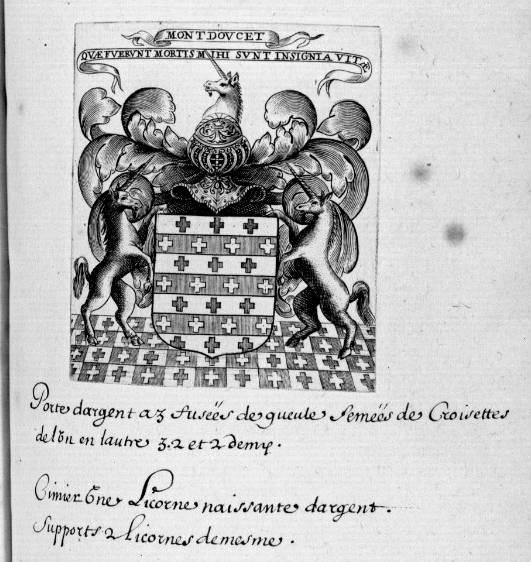 MONTDOVCET
QVÆ FVERVNT MORTIS MIHI SVNT INSIGNIA VITÆ
Porte dargent a 3 fusées de gueule semeés de Croisettes
de lún en lautre 3.2 et 2 demy.
Cimier Vne Licorne naissante dargent.
Supports 2 Licornes demesme.